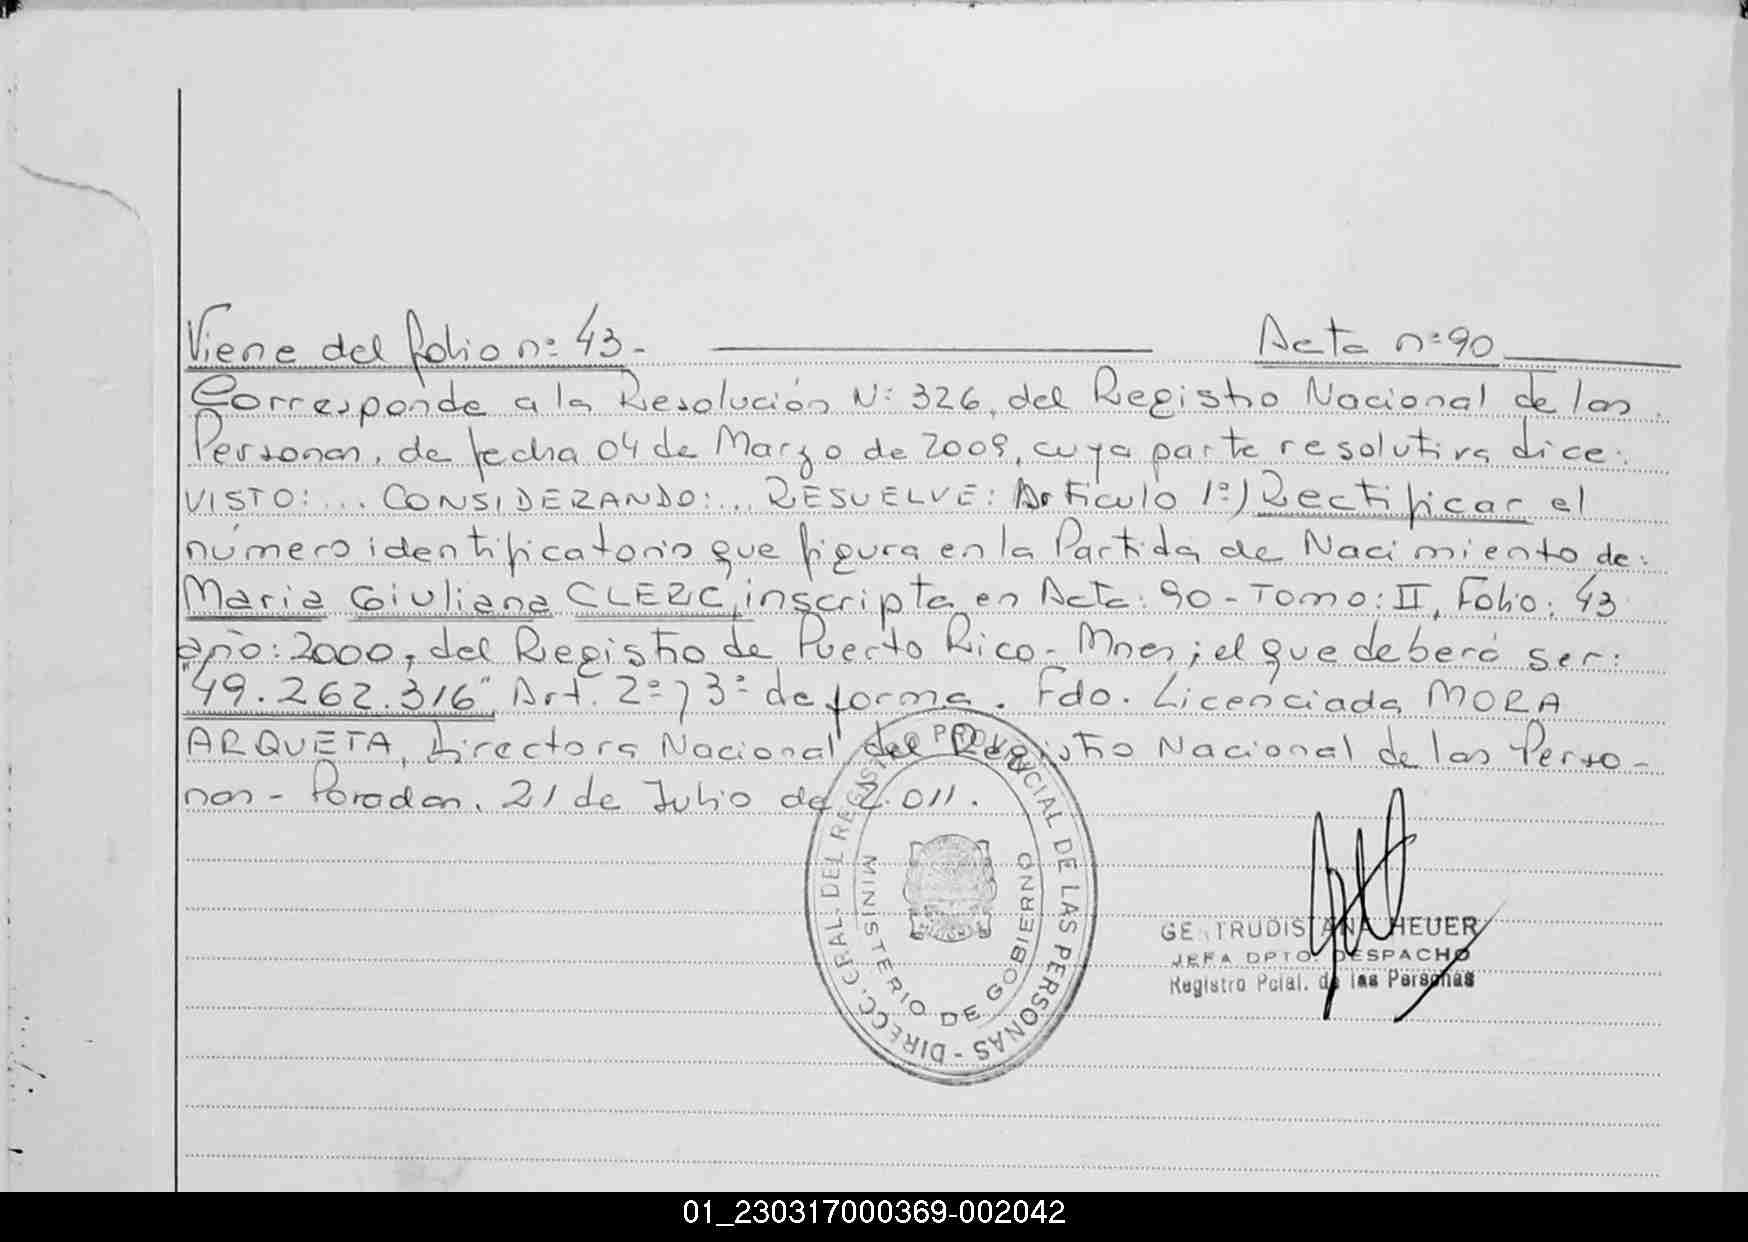 Viene del folio nº 43.- Acta nº 90
Corresponde a la Resolución Nº 326, del Registro Nacional de las
Personas, de fecha 04 de Marzo de 2009, cuya parte resolutiva dice:
VISTO:... CONSIDERANDO:... RESUELVE: Artículo 1º) Rectificar el
número identificatorio que figura en la Partida de Nacimiento de:
Maria Giuliana CLERC, inscripta en Acta: 90 - Tomo: II, Folio: 43
año: 2000, del Registro de Puerto Rico - Mnes; el que deberá ser:
"49.262.316" Art. 2º y 3º de forma. Fdo. Licenciada MORA
ARQUETA, Directora Nacional del Registro Nacional de las Perso-
nas - Posadas, 21 de Julio de 2.011.
DIRECC. GRAL. DEL REGISTRO PROVINCIAL DE LAS PERSONAS -
MINISTERIO DE GOBIERNO
GERTRUDIS ANA HEUER
JEFA DPTO. DESPACHO
Registro Pcial. de las Personas
01_230317000369-002042